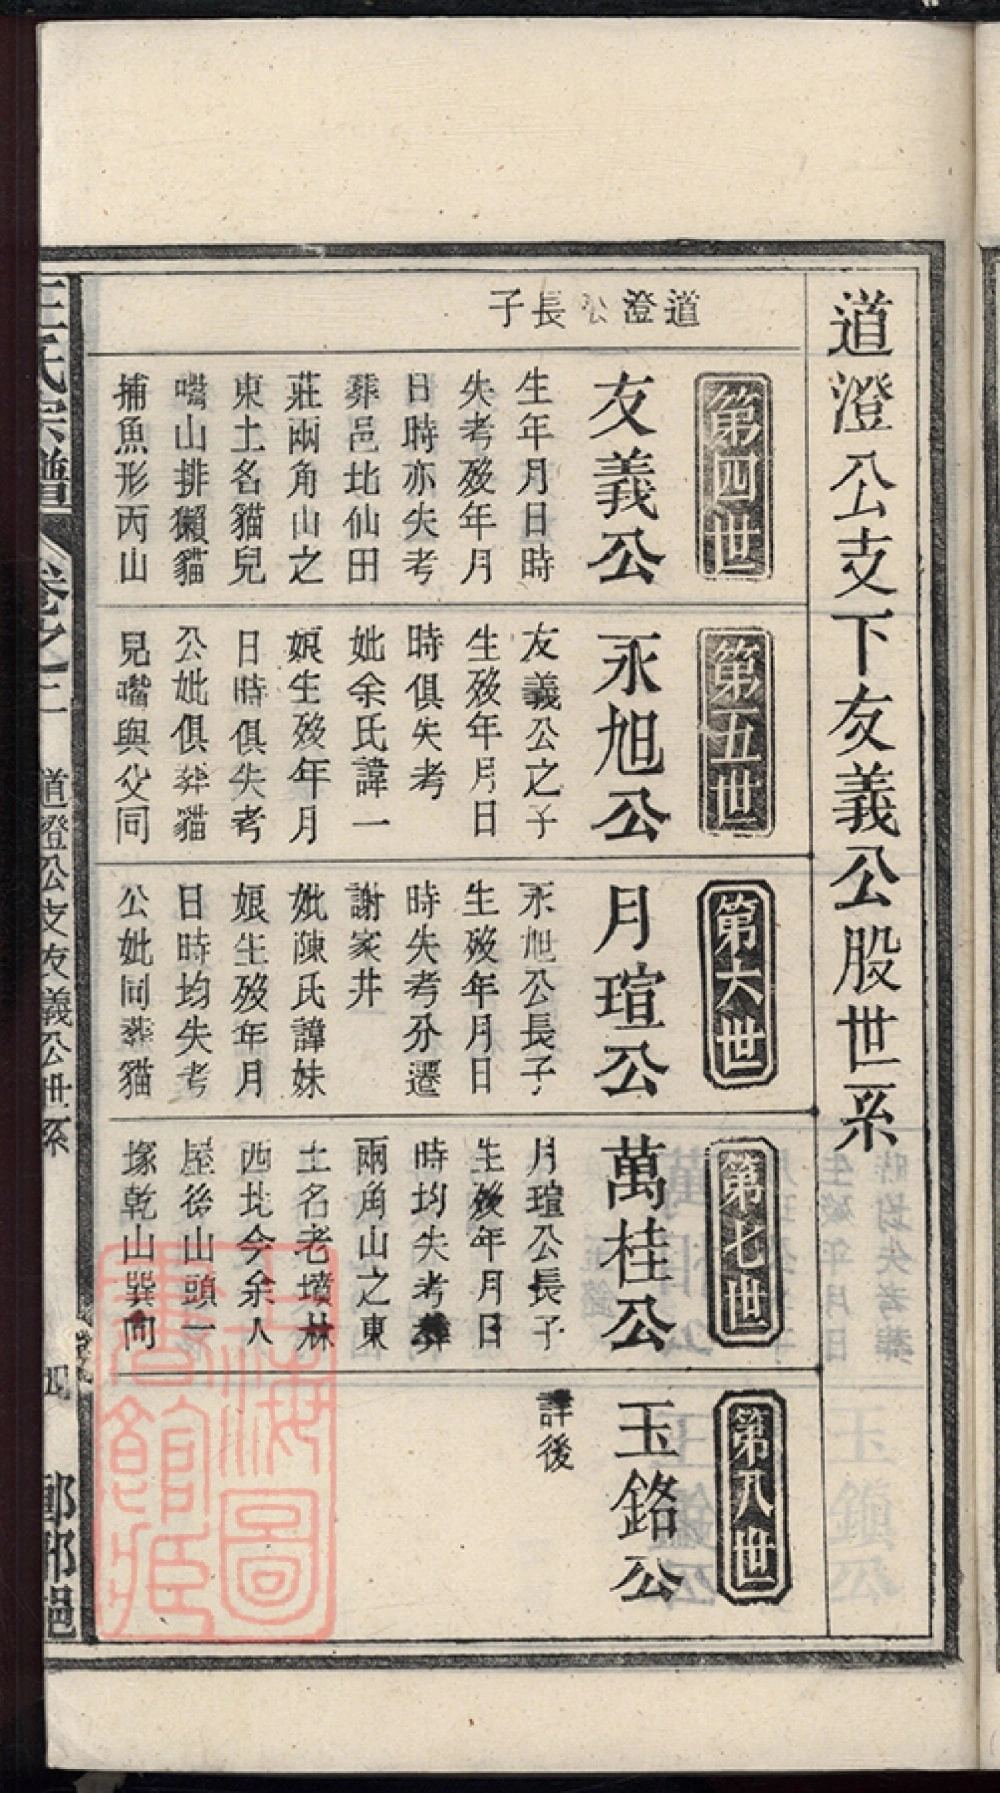 道澄公支下友義公股世系
道澄公長子
第四世
友義公
生年月日時
失考殁年月
日時亦失考
葬邑北仙田
莊兩角山之
東土名貓兒
嘴山排獺貓
捕魚形丙山
第五世
永旭公
友義公之子
生殁年月日
時俱失考
妣余氏諱一
娘生殁年月
日時俱失考
公妣俱葬貓
兒嘴與父同
第六世
月瑄公
永旭公長子
生殁年月日
時失考分遷
謝家井
妣陳氏諱妹
娘生殁年月
日時均失考
公妣同葬貓
第七世
萬桂公
月瑄公長子
生殁年月日
時均失考葬
兩角山之東
土名老墳林
西北今余人
屋後山頭一
塚乾山巽向
第八世
玉銘公
詳後
王氏宗譜
卷之二
道澄公支友義公世系
四
上海圖書館藏